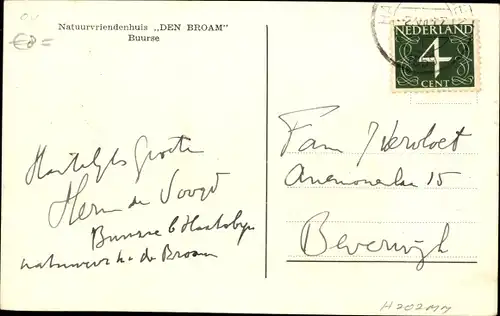 Natuurvriendenhuis „DEN BROAM”
Buurse
NEDERLAND
4
CENT
Hartelijks Groeten
Herm de Voogd
Buurse b Haaksbergen
natuurvr. h. de Broam
Fam Vervloet
Anemonenlaan 15
Beverwijk
H202MM